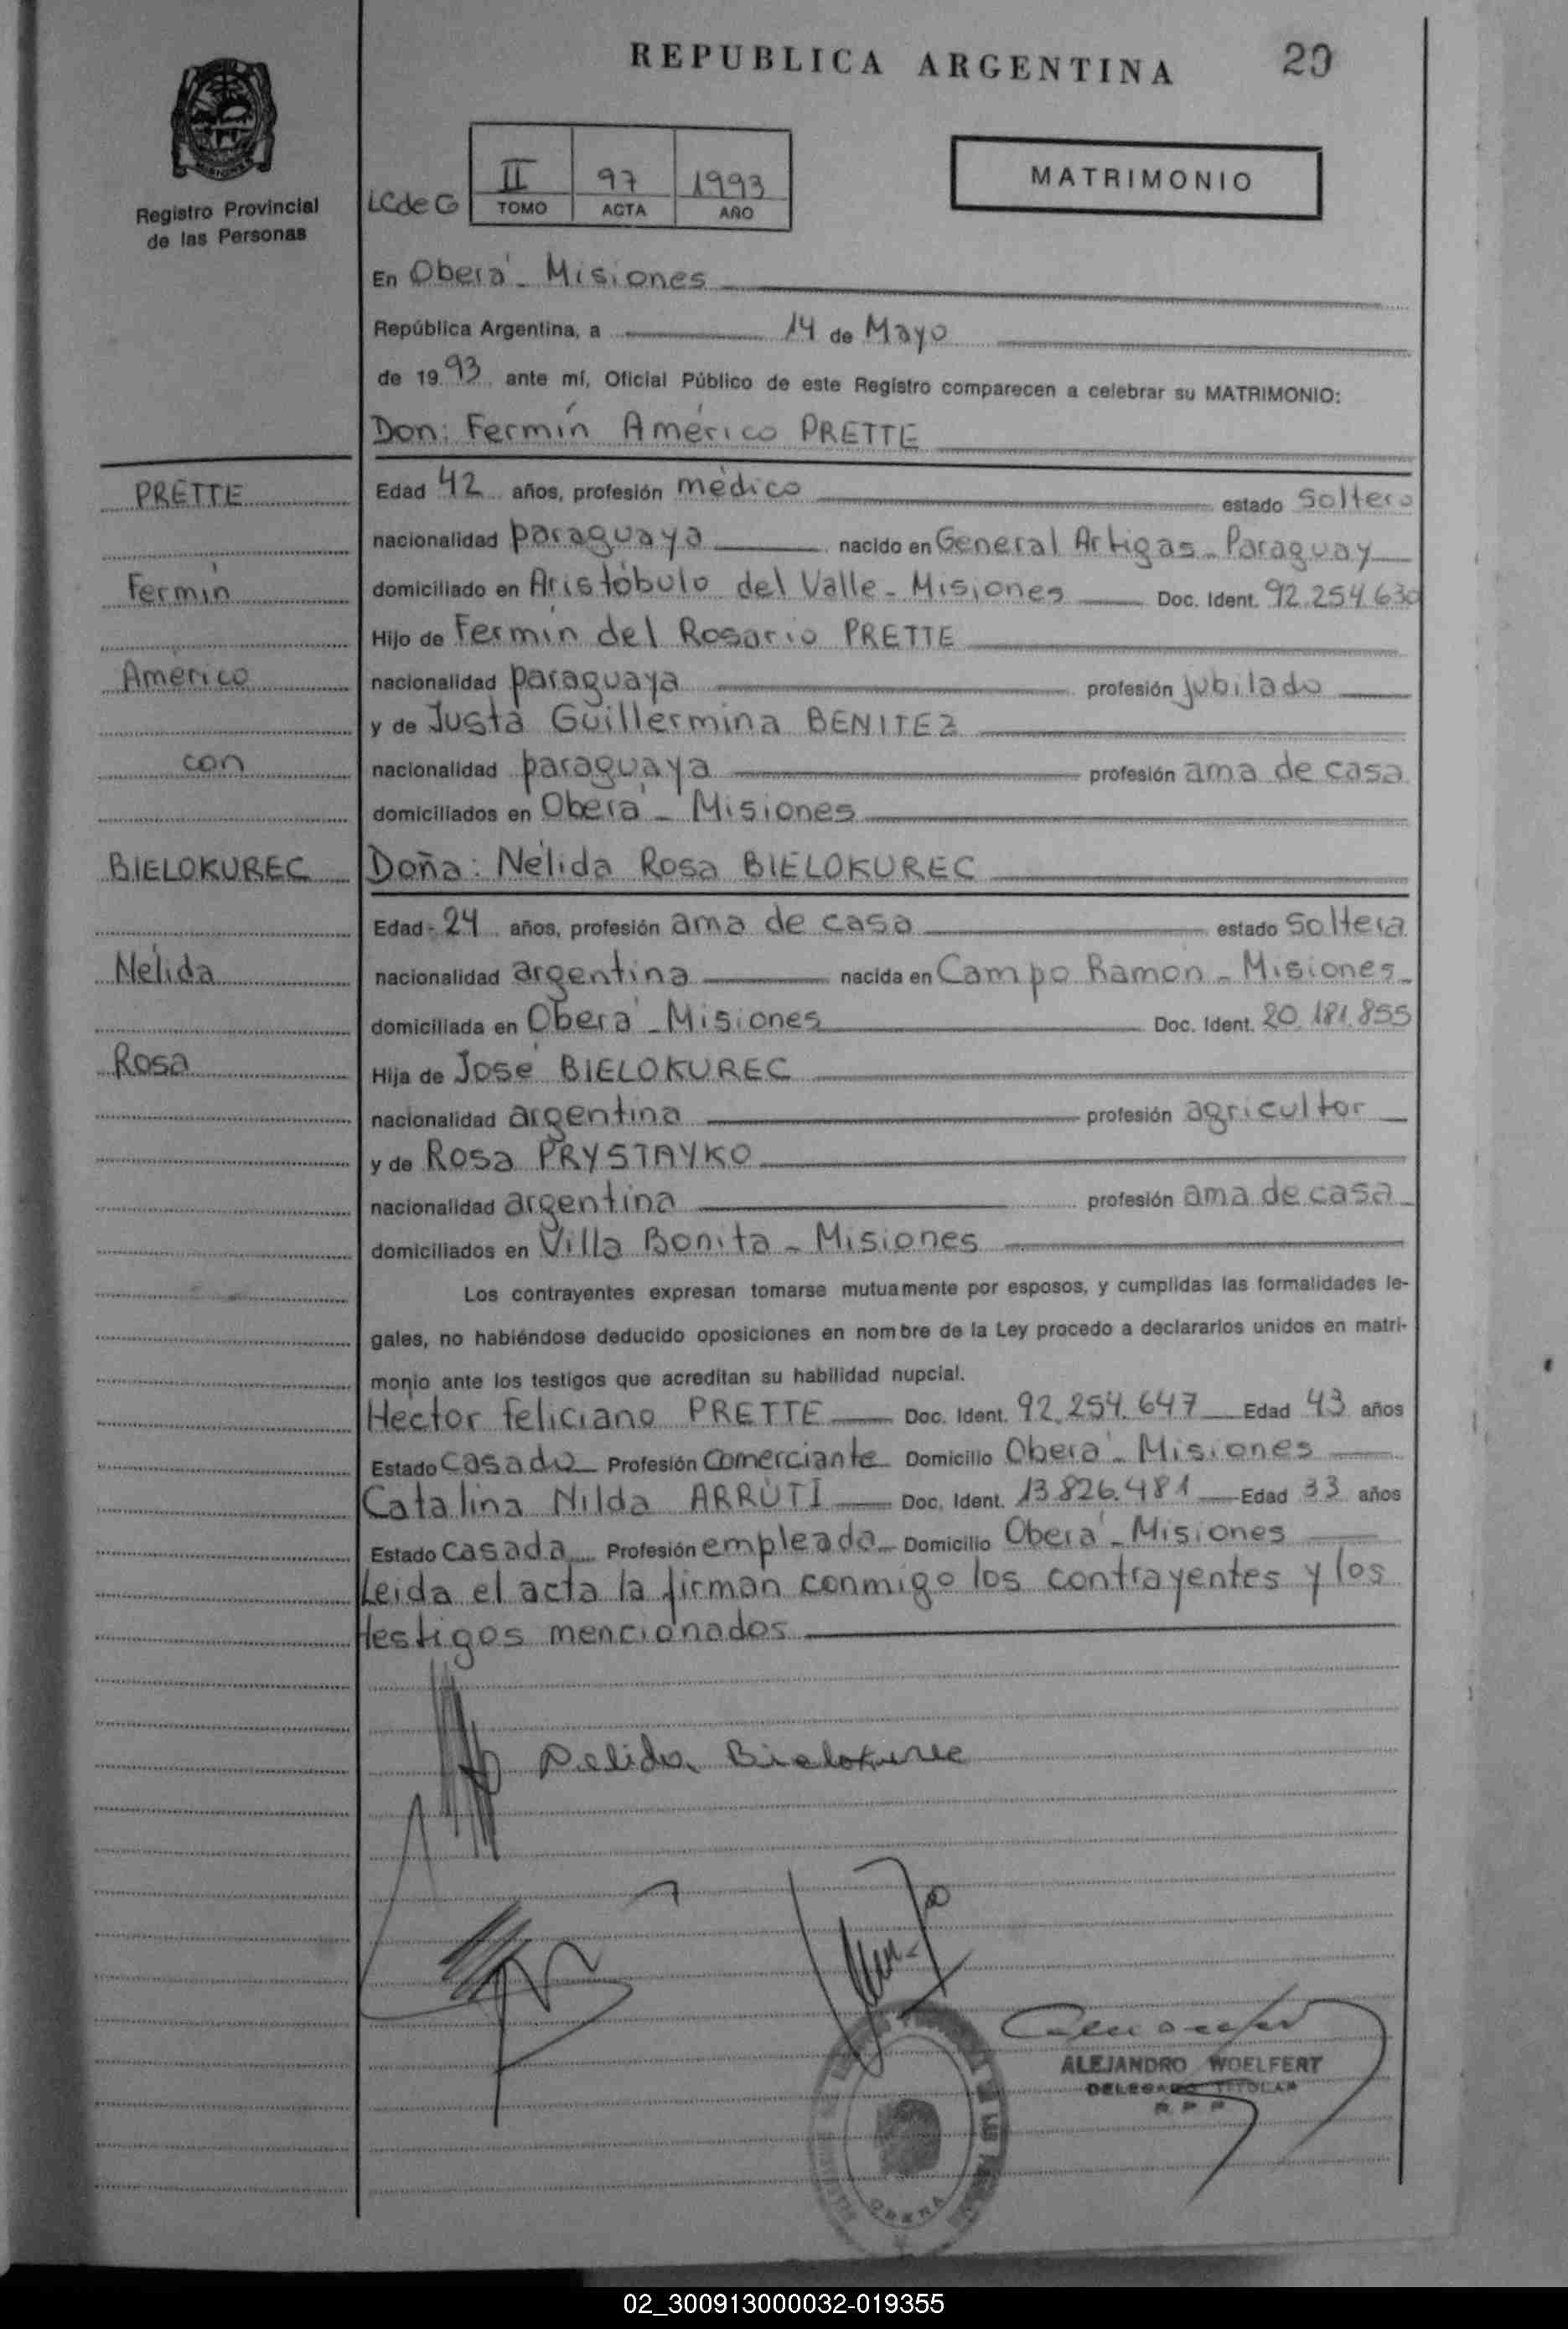 REPUBLICA ARGENTINA
20
MISIONES
Registro Provincial
de las Personas
LCdeG
II 97 1993
TOMO ACTA AÑO
MATRIMONIO
En Oberá - Misiones
República Argentina, a 14 de Mayo
de 1993 ante mí, Oficial Público de este Registro comparecen a celebrar su MATRIMONIO:
Don: Fermín Américo PRETTE
PRETTE
Edad 42 años, profesión médico estado Soltero
nacionalidad paraguaya nacido en General Artigas - Paraguay
Fermín
domiciliado en Aristóbulo del Valle - Misiones Doc. Ident. 92.254.630
Hijo de Fermín del Rosario PRETTE
Américo
nacionalidad paraguaya profesión jubilado
y de Justa Guillermina BENITEZ
con
nacionalidad paraguaya profesión ama de casa
domiciliados en Oberá - Misiones
BIELOKUREC
Doña: Nélida Rosa BIELOKUREC
Edad - 24 años, profesión ama de casa estado Soltera
Nélida
nacionalidad argentina nacida en Campo Ramon - Misiones
domiciliada en Oberá - Misiones Doc. Ident. 20.181.855
Rosa
Hija de José BIELOKUREC
nacionalidad argentina profesión agricultor
y de Rosa PRYSTAYKO
nacionalidad argentina profesión ama de casa
domiciliados en Villa Bonita - Misiones
Los contrayentes expresan tomarse mutuamente por esposos, y cumplidas las formalidades le-
gales, no habiéndose deducido oposiciones en nombre de la Ley procedo a declararlos unidos en matri-
monio ante los testigos que acreditan su habilidad nupcial.
Hector Feliciano PRETTE Doc. Ident. 92.254.647 Edad 43 años
Estado casado Profesión comerciante Domicilio Oberá - Misiones
Catalina Nilda ARRUTI Doc. Ident. 13.826.481 Edad 33 años
Estado casada Profesión empleada Domicilio Oberá - Misiones
Leida el acta la firman conmigo los contrayentes y los
testigos mencionados
Nelida Bielokurec
ALEJANDRO WOELFERT
DELEGADO TITULAR
R P P
OBERA
02_300913000032-019355